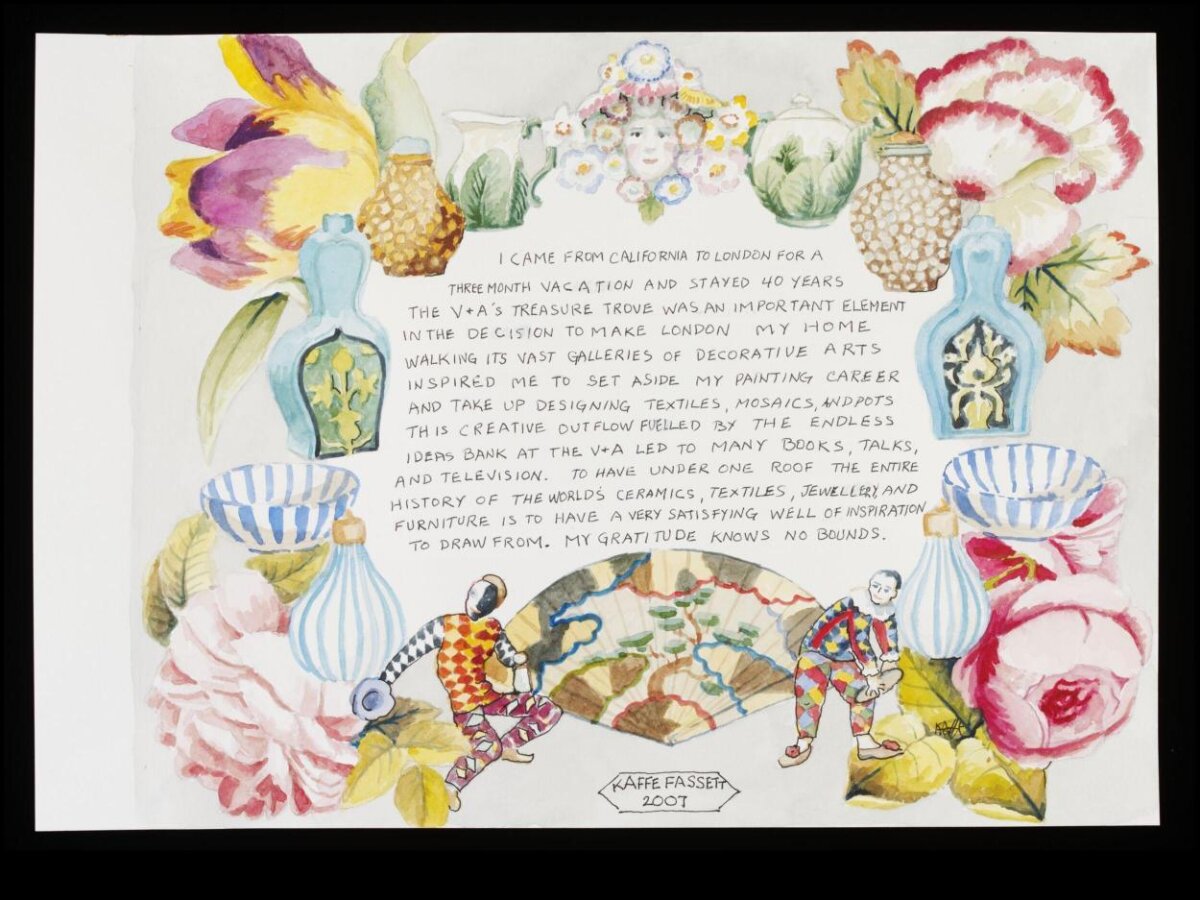 I CAME FROM CALIFORNIA TO LONDON FOR A
THREE MONTH VACATION AND STAYED 40 YEARS
THE V+A'S TREASURE TROVE WAS AN IMPORTANT ELEMENT
IN THE DECISION TO MAKE LONDON MY HOME
WALKING ITS VAST GALLERIES OF DECORATIVE ARTS
INSPIRED ME TO SET ASIDE MY PAINTING CAREER
AND TAKE UP DESIGNING TEXTILES, MOSAICS, AND POTS
THIS CREATIVE OUTFLOW FUELLED BY THE ENDLESS
IDEAS BANK AT THE V+A LED TO MANY BOOKS, TALKS,
AND TELEVISION. TO HAVE UNDER ONE ROOF THE ENTIRE
HISTORY OF THE WORLD'S CERAMICS, TEXTILES, JEWELLERY, AND
FURNITURE IS TO HAVE A VERY SATISFYING WELL OF INSPIRATION
TO DRAW FROM. MY GRATITUDE KNOWS NO BOUNDS.
KAFFE FASSETT
2007